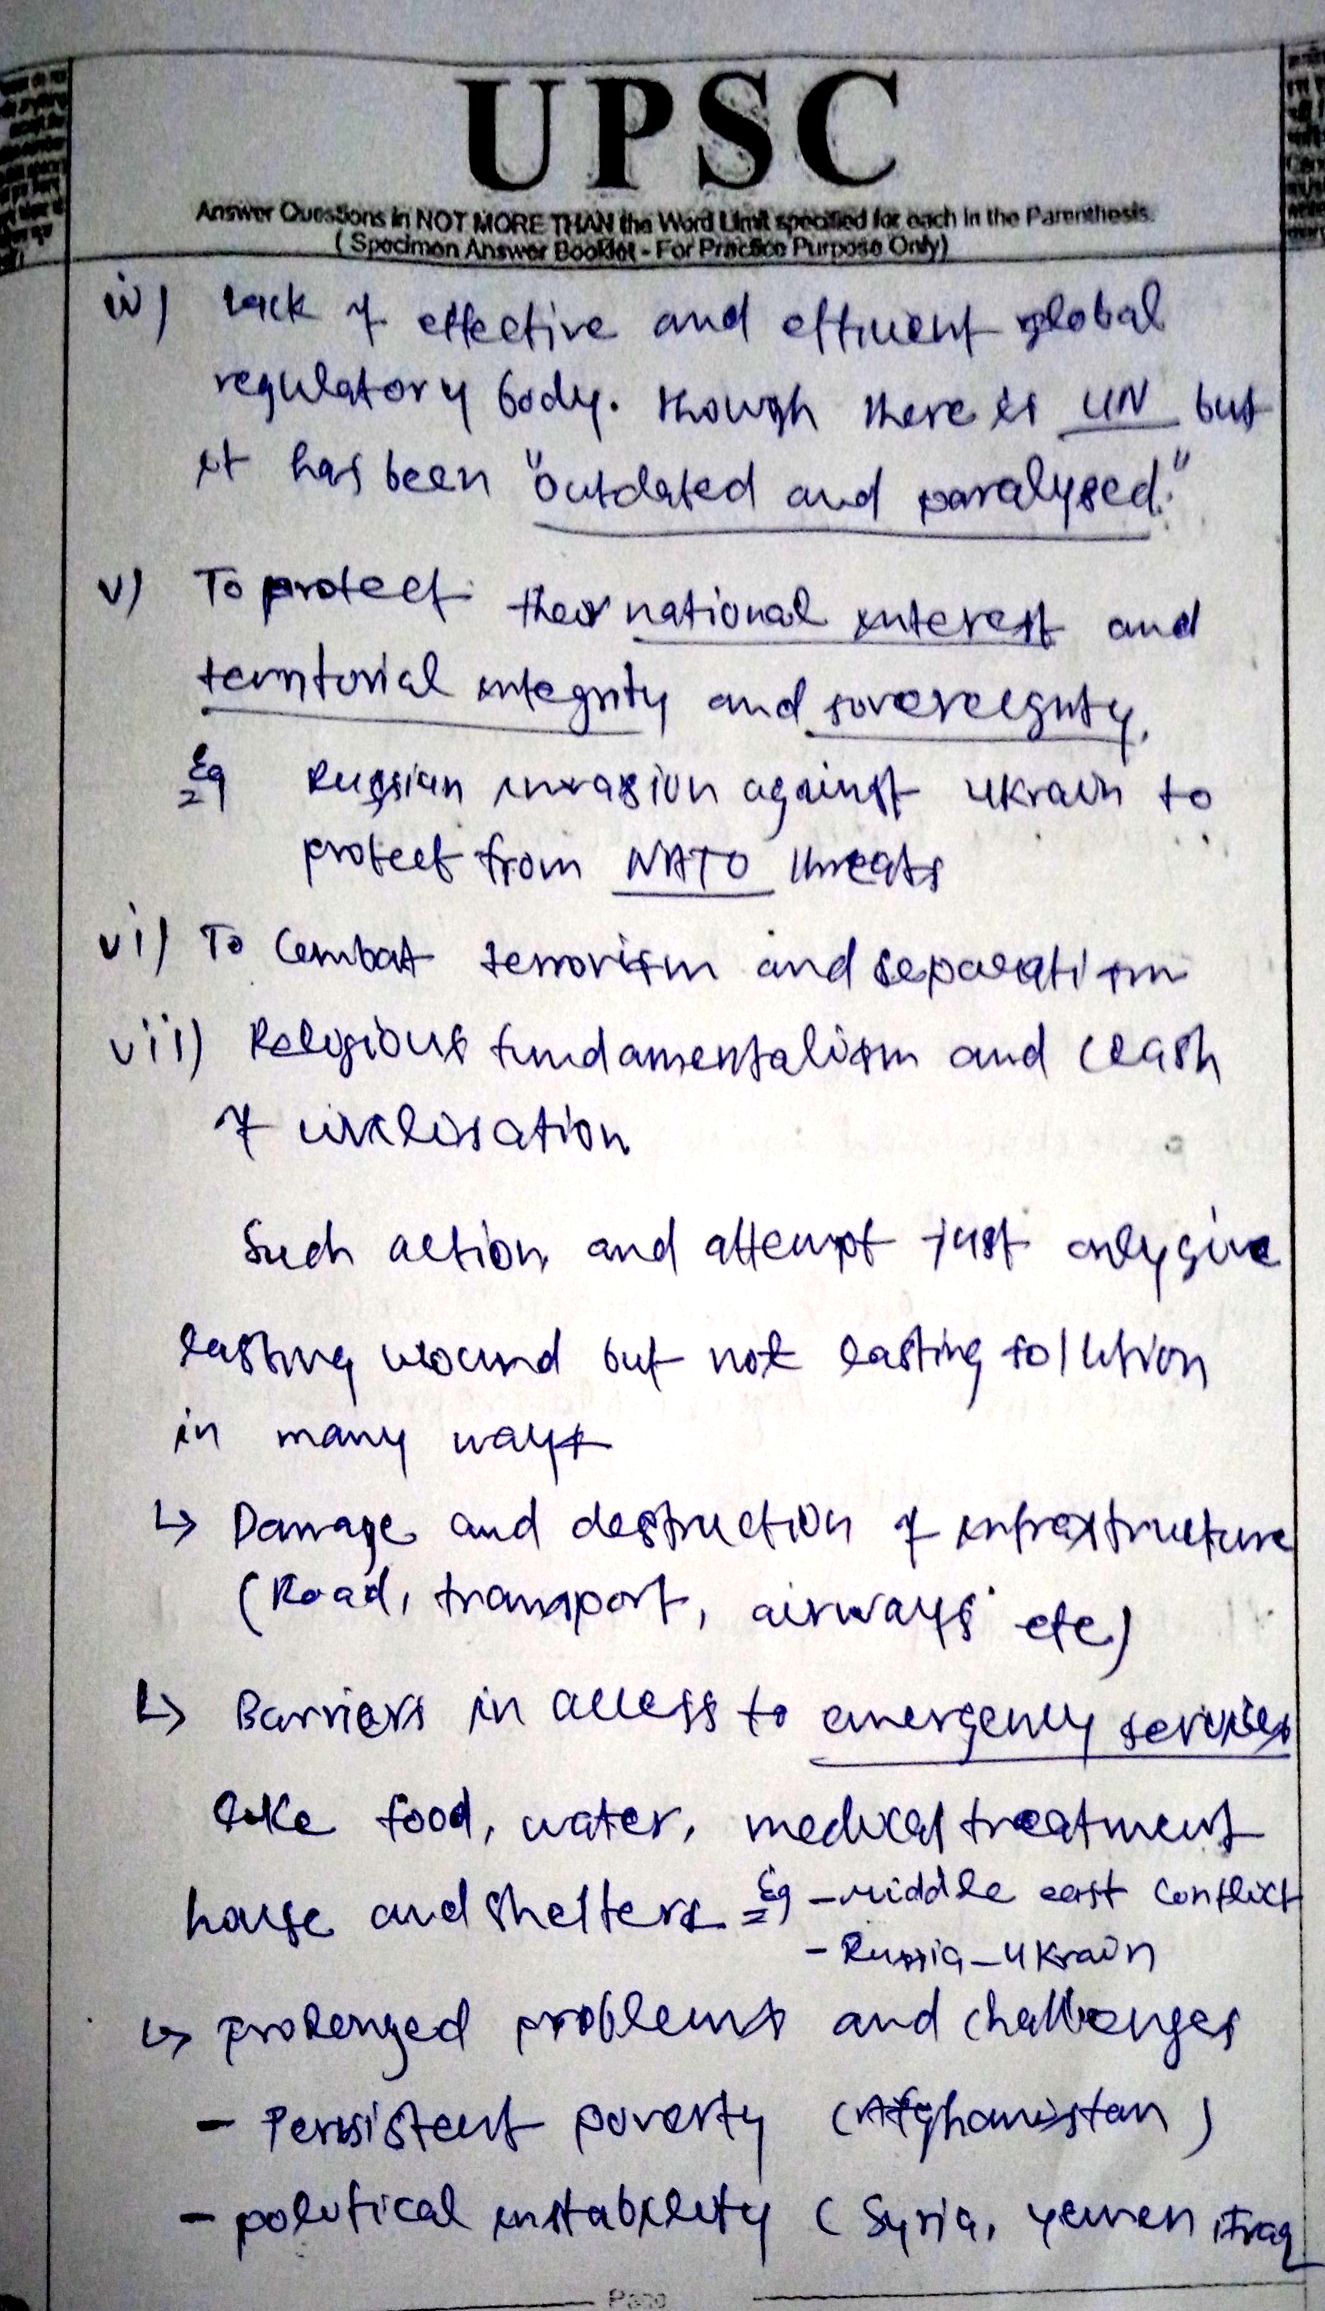 UPSC
Answer Questions in NOT MORE THAN the Word Limit specified for each in the Parenthesis.
( Specimen Answer Booklet - For Practice Purpose Only)
iv) Lack of effective and efficient global
regulatory body. though there is UN but
it has been "outdated and paralysed."
v) To protect their national interest and
territorial integrity and sovereignty.
Eg Russian invasion against Ukrain to
protect from NATO threats
vi) To Combat terrorism and separatism
vii) Religious fundamentalism and clash
of civilisation
Such action and attempt just only give
lasting wound but not lasting sollution
in many ways
↳ Damage and destruction of infrastructure
(Road, transport, airways etc)
↳ Barriers in access to emergency services
like food, water, medical treatment
house and shelters Eg - middle east conflict
- Russia-Ukrain
↳ prolonged problems and challenges
- Persistent poverty (Afghanistan)
- political instability (Syria, yemen, Iraq
Page